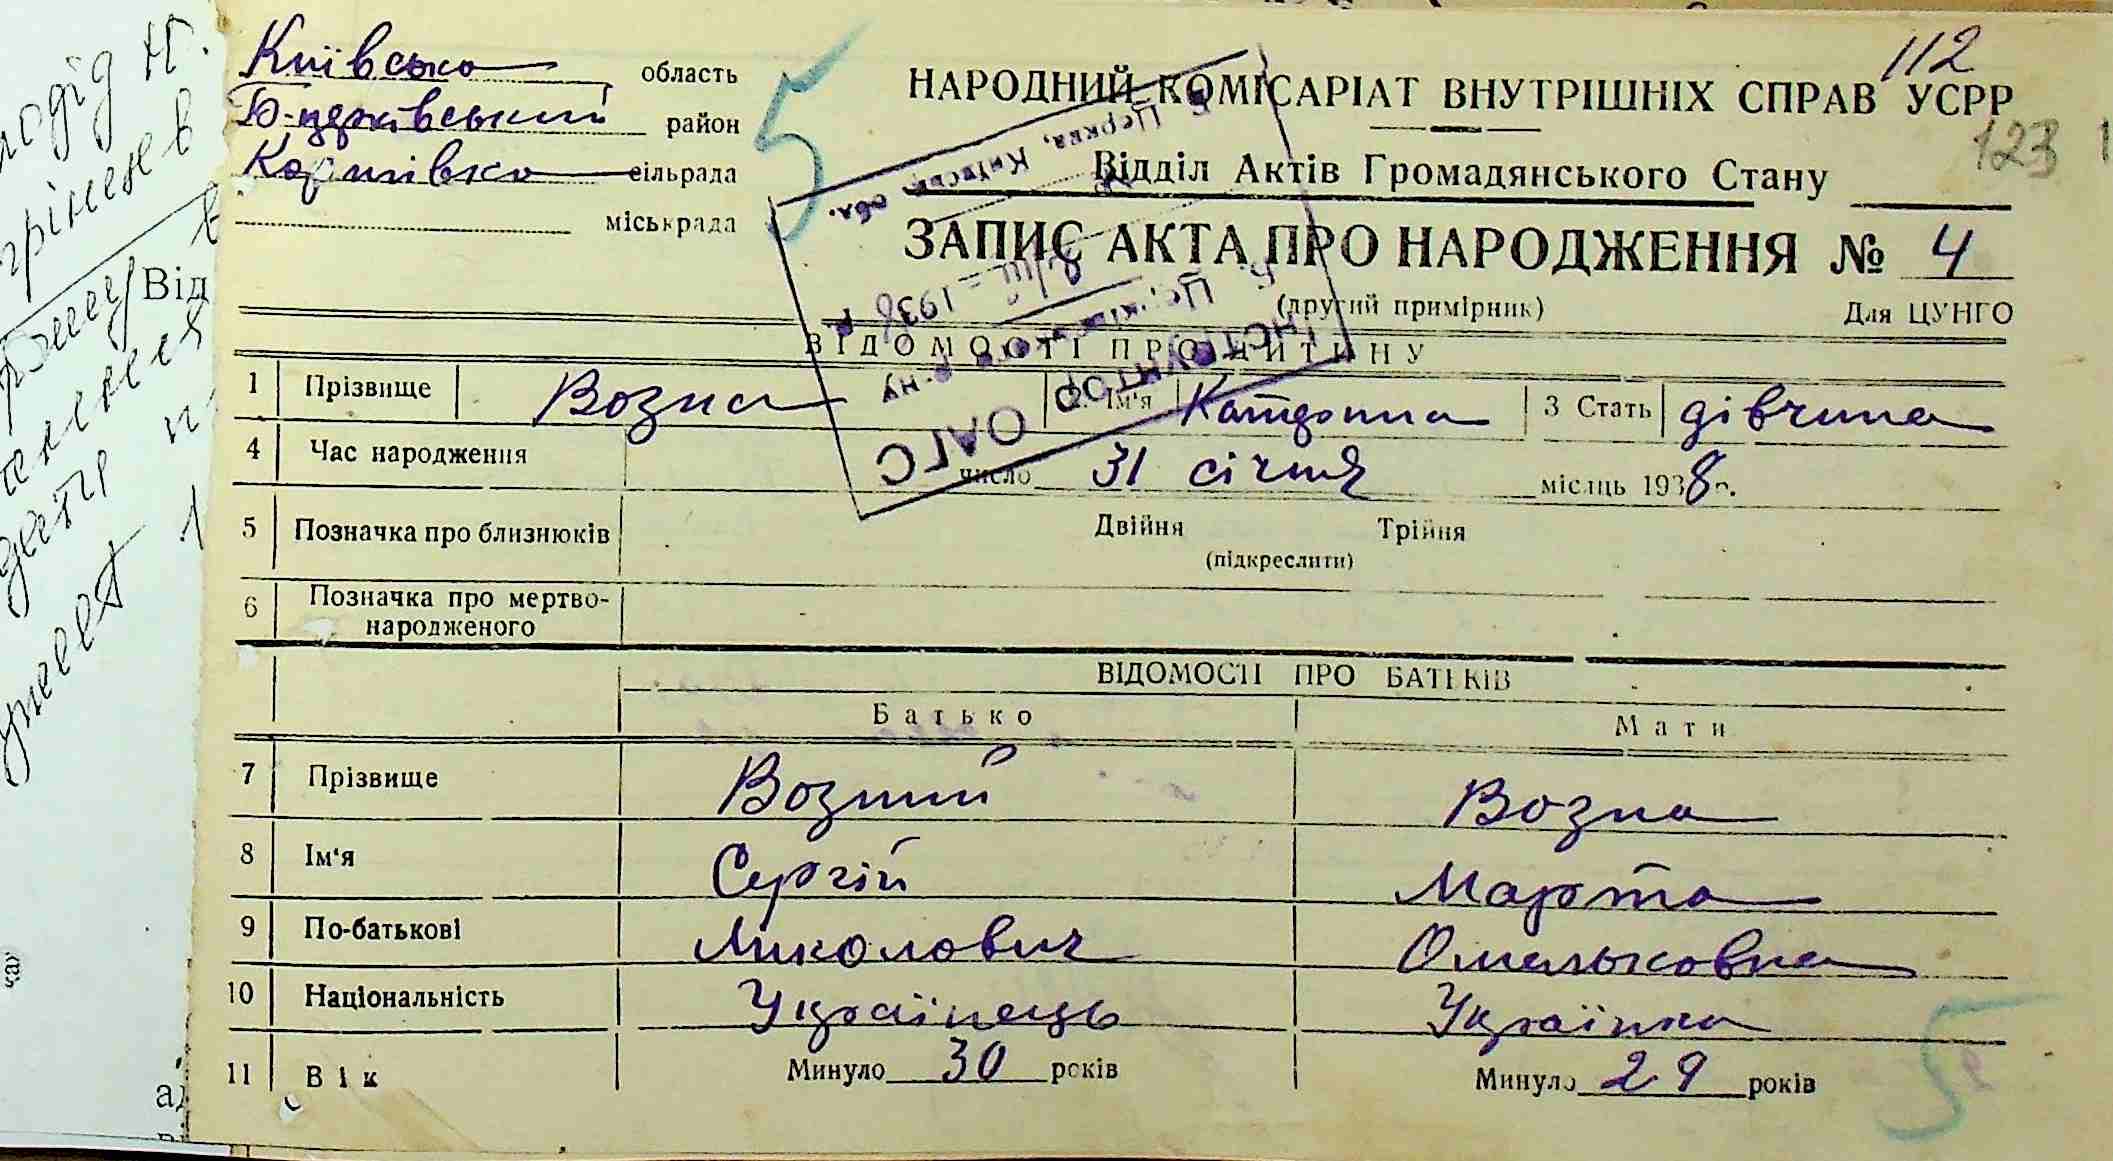 112
Київська область
Б-церківський район
сільрада
міськрада
НАРОДНИЙ КОМІСАРІАТ ВНУТРІШНІХ СПРАВ УСРР
123
Відділ Актів Громадянського Стану
ЗАПИС АКТА ПРО НАРОДЖЕННЯ № 4
(другий примірник) Для ЦУНГО
ВІДОМОСТІ ПРО ДИТИНУ
1 Прізвище Возна 2. Ім'я Катерина 3 Стать дівчина
4 Час народження число 31 січня місяць 1938 р.
5 Позначка про близнюків Двійня Трійня
(підкреслити)
6 Позначка про мертво-
народженого
ВІДОМОСТІ ПРО БАТЬКІВ
Батько Мати
7 Прізвище Возний Возна
8 Ім'я Сергій Марта
9 По-батькові Миколович Омельковна
10 Національність Українець Українка
11 Вік Минуло 30 років Минуло 29 років
5
5
ІНСПЕКТОР ОАГС
Б. Церківського р-ну
1938 р.
Б. Церква, Київськ. обл.
Від